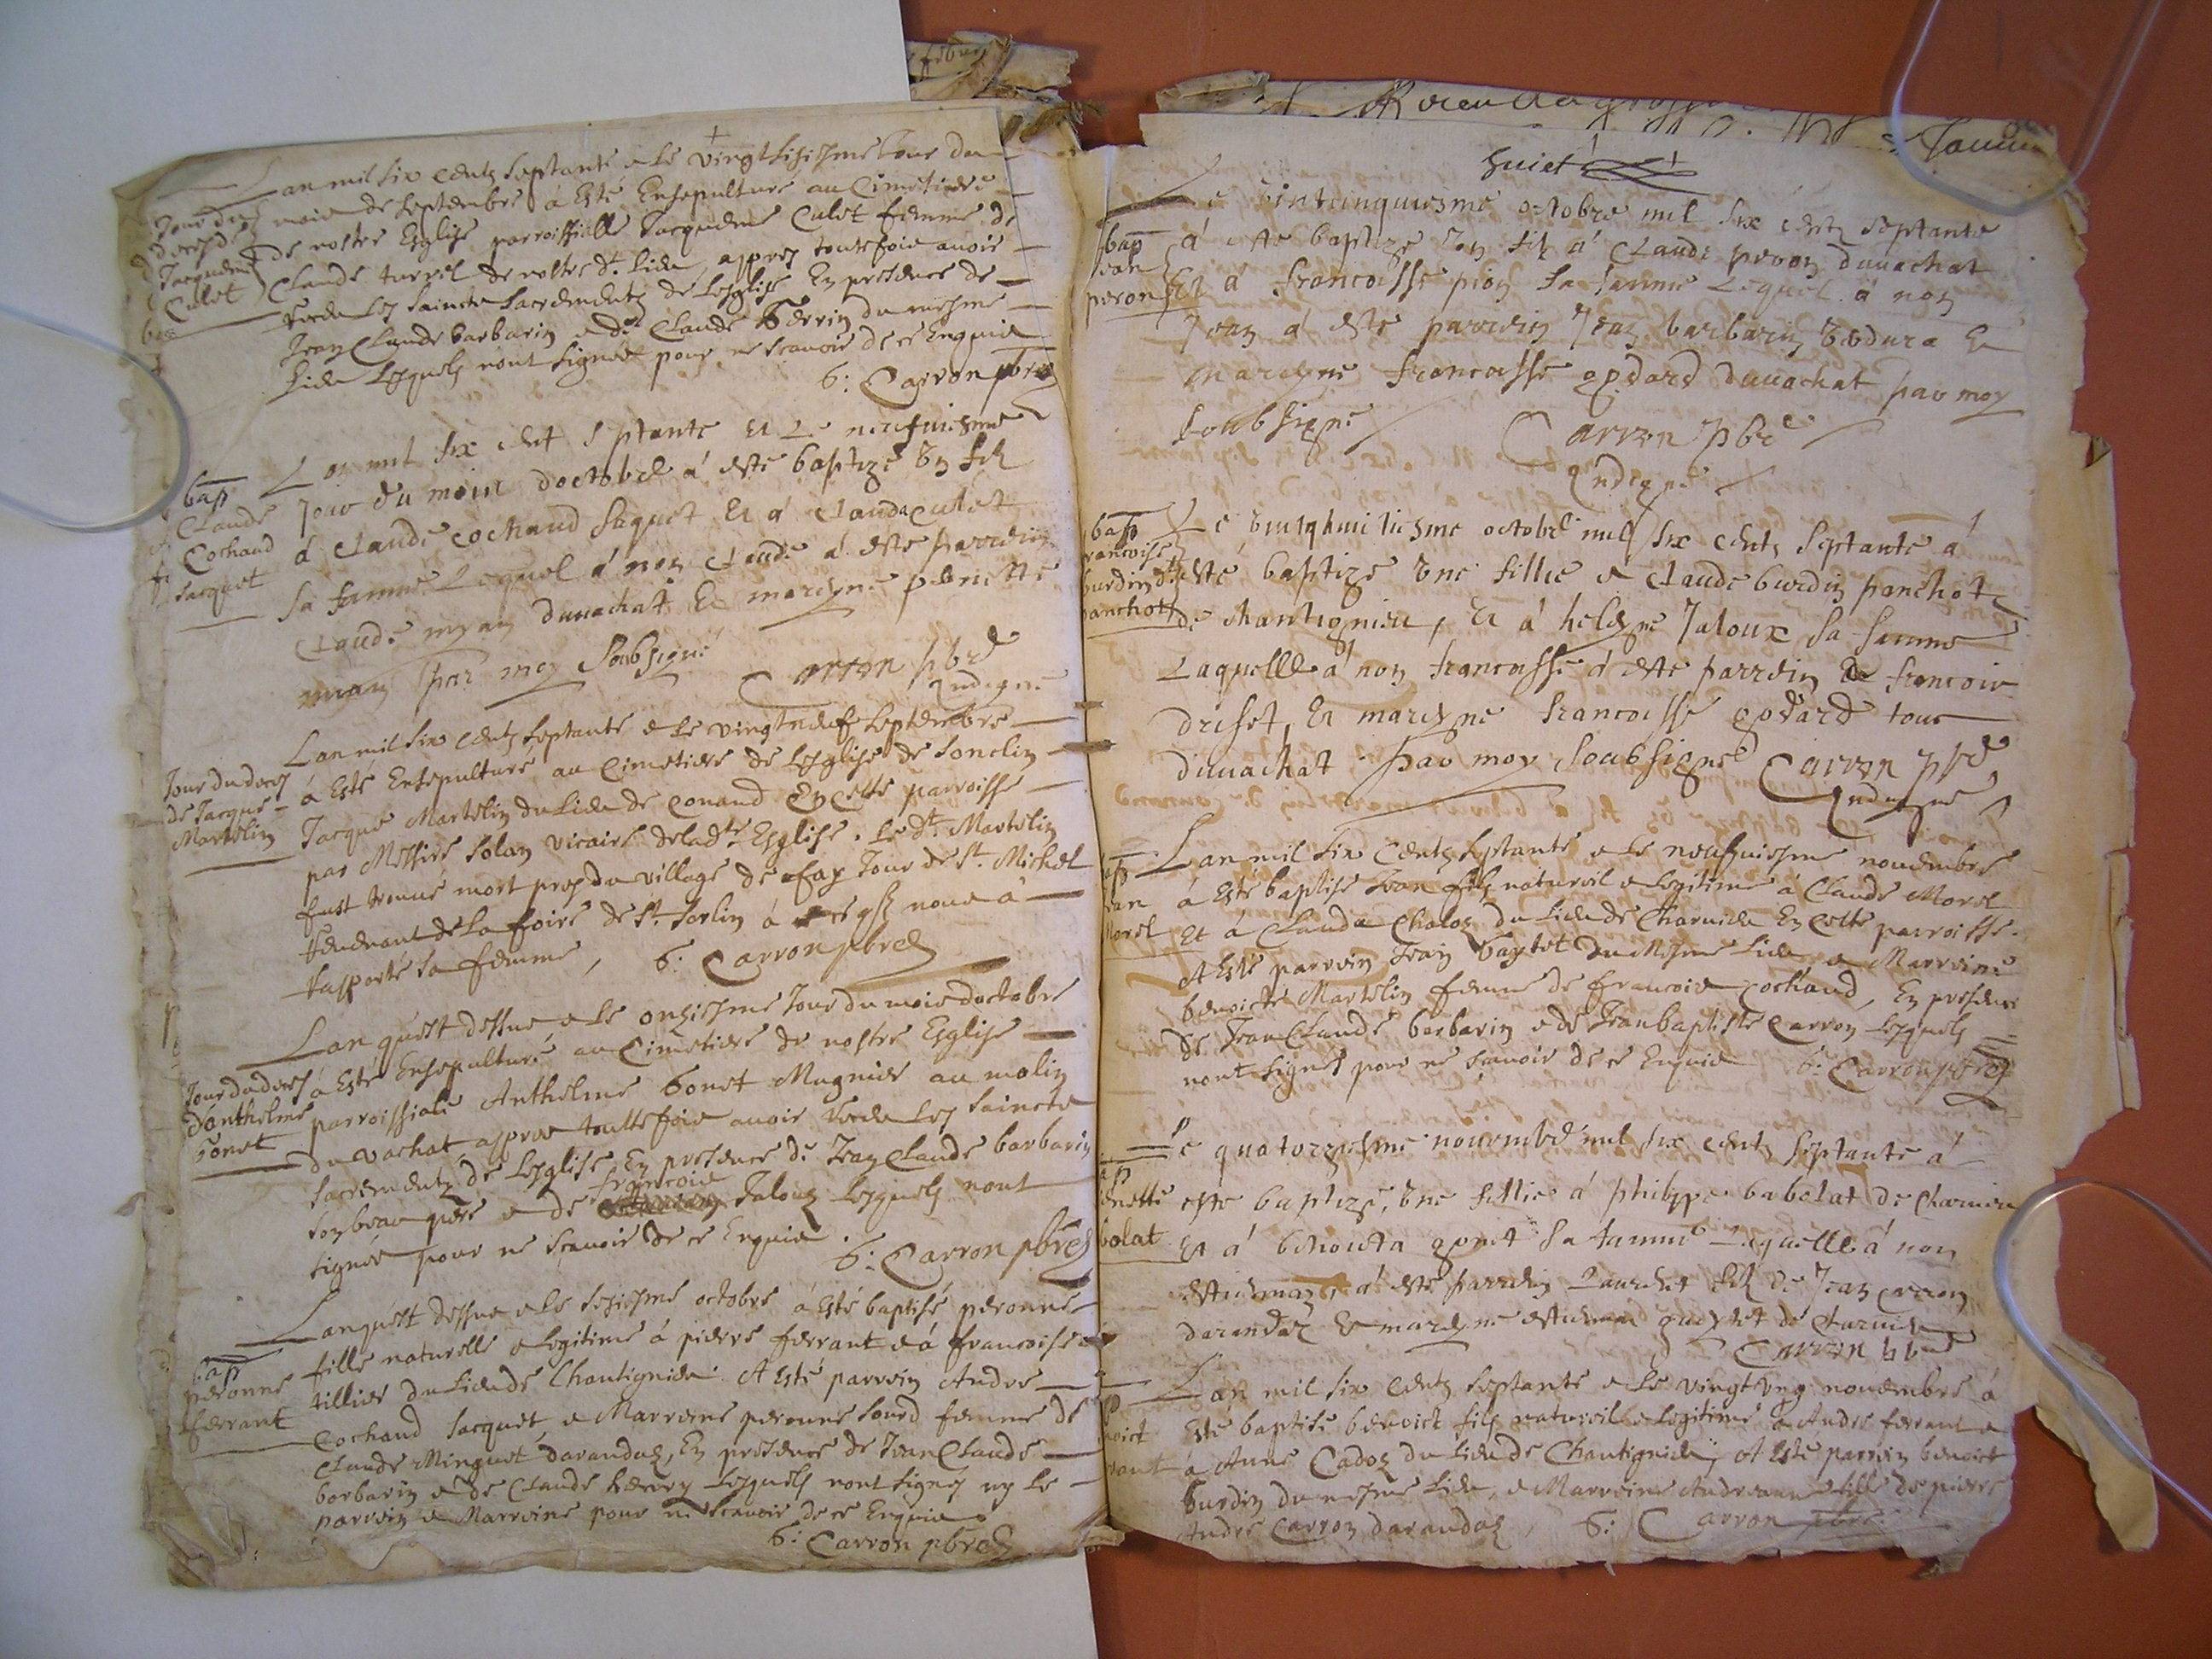 Lan mil six centz septante e le vingtsisiesme Jour du
mois de septembre à Esté Ensepulturé au Cimetiere
de nostre Esglise parroissialle Jacquema Culet femme de
Claude turrel de nostre dt. lieu, appres toutefois avoir
receu les saincts sacrements de Lesglise En presence de
Jean Claude barbarin e de Claude perrin du mesme
lieu lesquels nont signés pour ne scavoir de ce Enquis
b: Carron pbre
Jour du
deces de
Jacquema
Culet
bap
Claude
Cochand
Jacquet
Lan mil six cent septante et Le neufuiesme
Jour du mois doctobre á esté baptizé un filz
á Claude Cochand Jaquet et á Clauda Culet
sa famme Lequel á nom Claude á esté parrein
Claude myan duuachat et mareyne pernette
myan par moy Soubsigné
Carron pbre
Indigne
Jour du deces
de Jacque
Martelin
Lan mil six centz septante e le vingtneuf septembre
à Esté Ensepulturé au Cimetiere de Lesglise de Sonclin
Jacque Martelin du lieu de Conand En cette parroisse
par Messire Solan vicaire delad.te Esglise. Le dt. Martelin
fust trouué mort pres du village de fay Jour de St. Michel
Reuenant de La foire de St. Sorlin à ce qz nous à
rapporté sa femme, b: Carron pbre
Lan quest dessus e le onziesme Jour du mois doctobre
à Esté Ensepulturé au Cimetiere de nostre Esglise
parroissiale Anthelme bonet Mugnier au molin
du vachat, appres touttefois avoir receu les saincts
sacrements de Lesglise, En presence de Jean Claude barbarin
son beau pere e de francois Jaloux lesquels nont
signés pour ne scavoir de ce Enquis
b: Carron pbre
Jour du deces
danthelme
bonet
Lan quest dessus e le sesiesme octobre à Esté baptisé peronne
fille naturelle e legitime à pierre ferrant e à francoise
tillier du lieu de Chantignieu. A Esté parrein Andre
Cochand Jacquet, e Marreine peronne Sourd femme de
Claude Minguet darandaz, En presence de Jean Claude
barbarin e de Claude henry lesquels nont signés ny le
parrein e Marreine pour ne scavoir de ce Enquis
b: Carron pbre
bap
peronne
ferrant
huict
Le vintcinquiesme octobre mil six centz septante
á este baptize un filz á Claude peron duuachat
Et á francoisse pion sa famme Lequel á nom
Jean á esté parrein Jean barbarin et
mareyne francoisse godard duuachat par moy
soubsigné Carron pbre
Indigne
bap
Jean
peron
Le vintqhuitiesme octobre mil six centz septante á
esté baptizé une fillie e Claude burdin panchot
de chantignieu, Et á heleyne Jaloux sa famme
Laquelle á nom francoisse á esté parrein francois
driset, Et mareyne francoisse godard tous
duuachat par moy soubsigné Carron pbre
Indigne
bap
francoise
burdin dt
panchot
Lan mil six centz septante e le neufuiesme nouembre
à Esté baptisé Jean filz naturel e legitime à Claude Morel
Et à Clauda Chaloz du lieu de Charuieu En cette parroisse.
A Esté parrein Jean baytet du Mesme lieu e Marreine
benoiste Martelin femme de francois Cochand, En presence
de Jean Claude barbarin e de Jean baptiste Carron lesquels
nont signés pour ne scavoir de ce Enquis b: Carron pbre
Jean
Morel
Le quatorziesme nouembre mil six centz septante á
este baptizé, une fillie á philippe babolat de Charuieu
Et á benoista gonet sa famme Laquelle á nom
estiennaz, á esté parrein Laurent filz de Jean carron
darandaz Et mareyne estiennaz de Charuieu
Carron pbre
Lan mil six centz septante e le vingtung nouembre à
Esté baptisé benoict filz naturel e legitime à Andre ferrant e
à Anne Cadoz du lieu de Chantignieu, A Esté parrein benoict
burdin du mesme lieu, e Marreine Andreanne fille de pierre
André Carron darandaz, b: Carron pbre